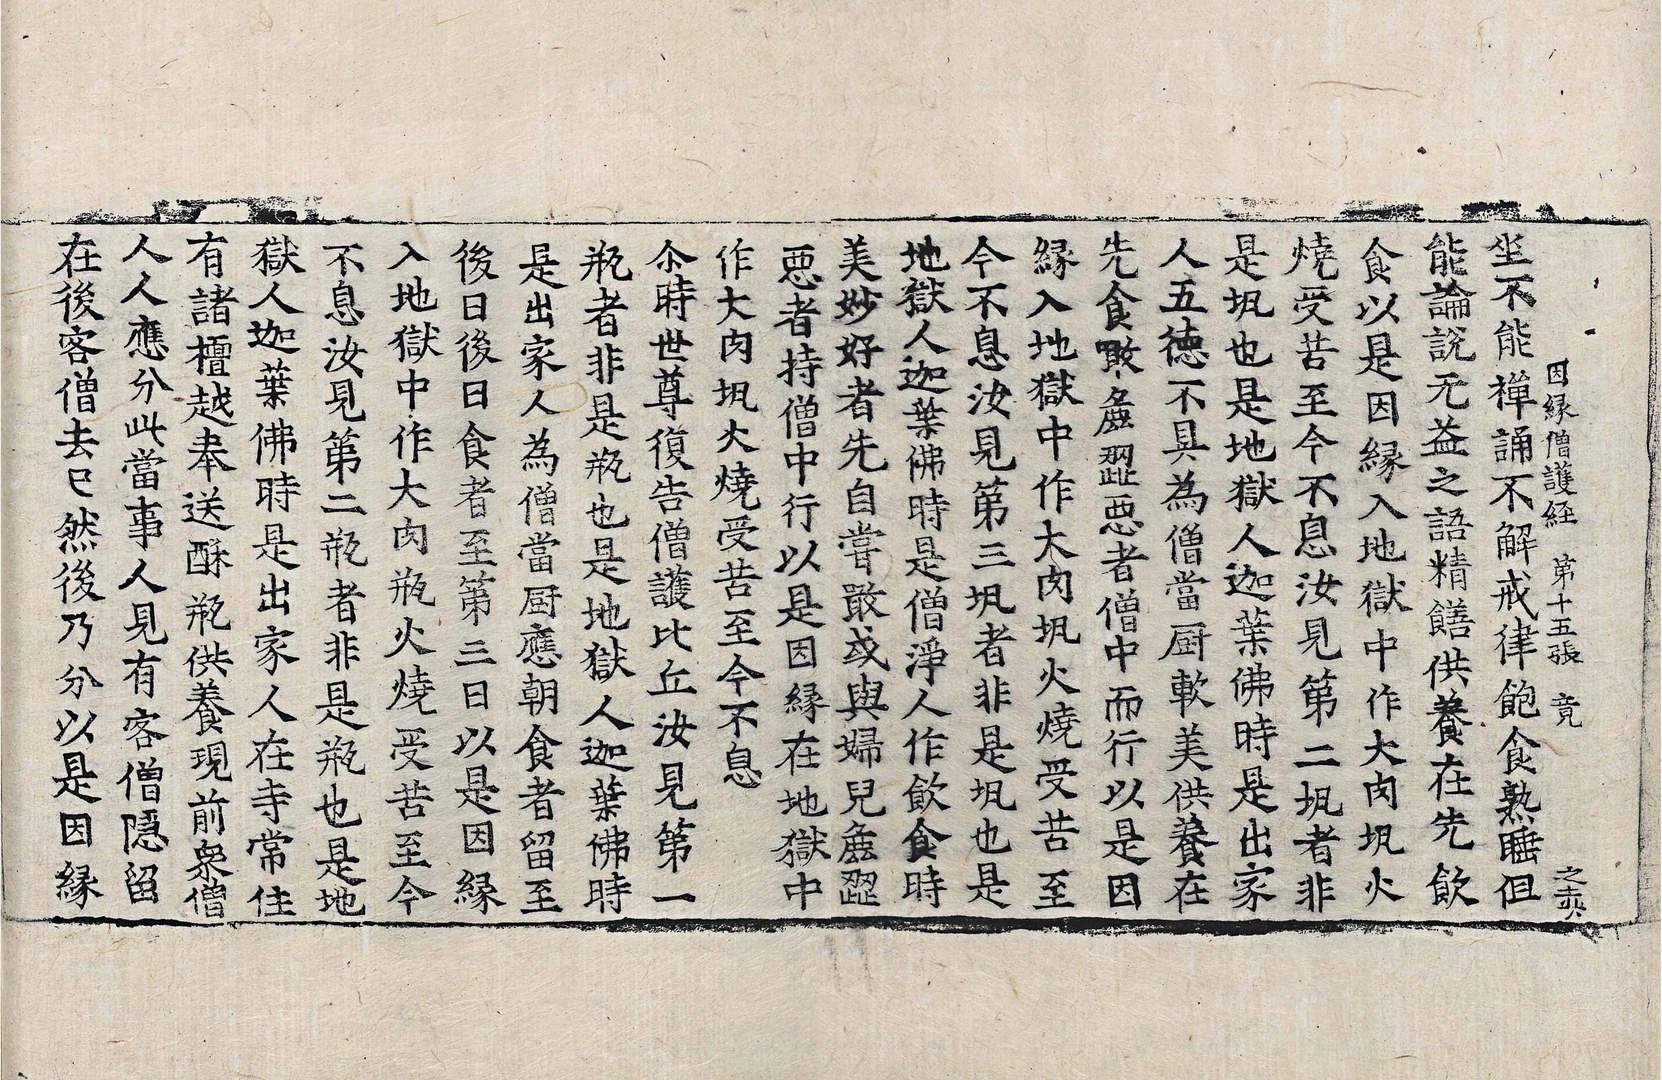 因縁僧護経 第十五張 竟 之奕
坐不能禅誦不解戒律飽食熟睡但
能論説无益之語精饍供養在先飲
食以是因縁入地獄中作大肉㼚火
燒受苦至今不息汝見第二㼚者非
是㼚也是地獄人迦葉佛時是出家
人五徳不具為僧當厨軟美供養在
先食噉麁澀惡者僧中而行以是因
縁入地獄中作大肉㼚火燒受苦至
今不息汝見第三㼚者非是㼚也是
地獄人迦葉佛時是僧淨人作飲食時
美妙好者先自嘗噉或與婦兒麁澀
惡者持僧中行以是因縁在地獄中
作大肉㼚火燒受苦至今不息
尒時世尊復告僧護比丘汝見第一
瓶者非是瓶也是地獄人迦葉佛時
是出家人為僧當厨應朝食者留至
後日後日食者至第三日以是因縁
入地獄中作大肉瓶火燒受苦至今
不息汝見第二瓶者非是瓶也是地
獄人迦葉佛時是出家人在寺常住
有諸檀越奉送酥瓶供養現前衆僧
人人應分此當事人見有客僧隱留
在後客僧去已然後乃分以是因縁